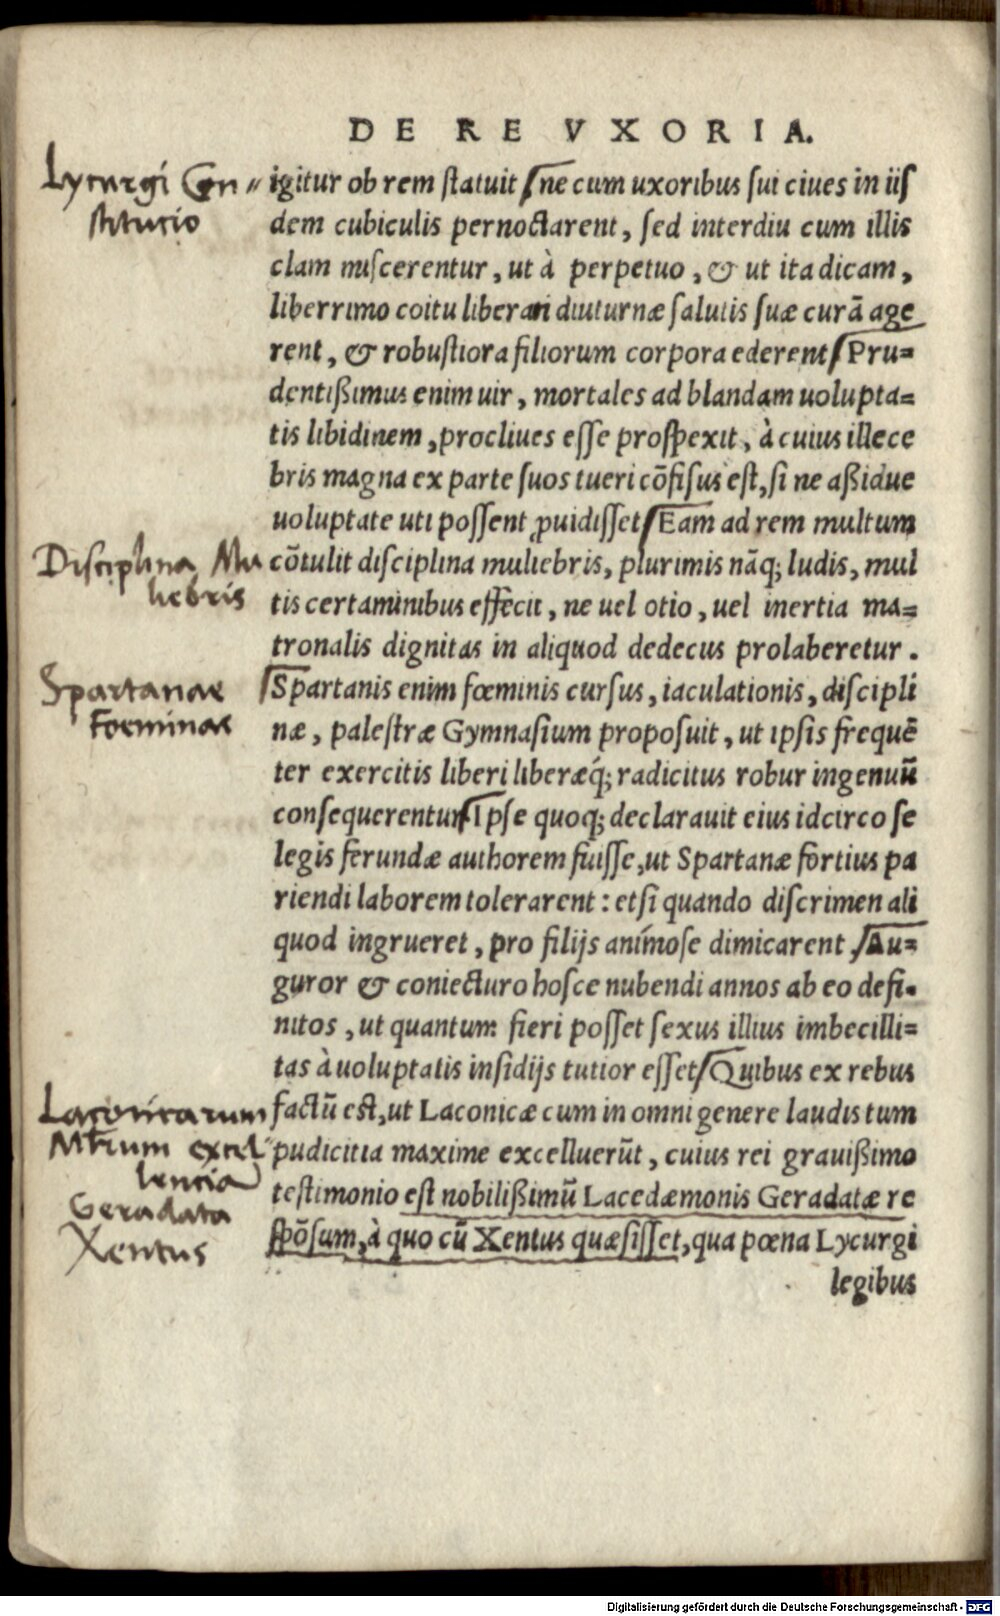 DE RE VXORIA.
Lycurgi Con„
stitutio
igitur ob rem statuit ne cum uxoribus sui ciues in iis
dem cubiculis pernoctarent, sed interdiu cum illis
clam miscerentur, ut à perpetuo, & ut ita dicam,
liberrimo coitu liberari diuturnæ salutis suæ curā age
rent, & robustiora filiorum corpora ederent Pru=
dentißimus enim uir, mortales ad blandam uolupta=
tis libidinem, procliues esse prospexit, à cuius illece
bris magna ex parte suos tueri cōfisus est, si ne aßidue
uoluptate uti possent ꝓuidisset Eam ad rem multum
Disciplina Mu
liebris
cōtulit disciplina muliebris, plurimis nāq; ludis, mul
tis certaminibus effecit, ne uel otio, uel inertia ma=
tronalis dignitas in aliquod dedecus prolaberetur.
Spartanae
Foeminae
Spartanis enim fœminis cursus, iaculationis, discipli
næ, palestræ Gymnasium proposuit, ut ipsis frequē
ter exercitis liberi liberæq́; radicitus robur ingenuū
consequerentur Ipse quoq; declarauit eius idcirco se
legis ferundæ authorem fuisse, ut Spartanæ fortius pa
riendi laborem tolerarent: etsi quando discrimen ali
quod ingrueret, pro filijs animose dimicarent Au=
guror & coniecturo hosce nubendi annos ab eo defi=
nitos, ut quantum fieri posset sexus illius imbecilli=
tas à uoluptatis insidijs tutior esset Quibus ex rebus
Laconicarum
Mrum excel„
lencia
Geradata
Xentus
factū est, ut Laconicæ cum in omni genere laudis tum
pudicitia maxime excelluerūt, cuius rei grauißimo
testimonio est nobilißimū Lacedæmonis Geradatæ re
spōsum, à quo cū Xentus quæsisset, qua pœna Lycurgi
legibus
Digitalisierung gefördert durch die Deutsche Forschungsgemeinschaft - DFG